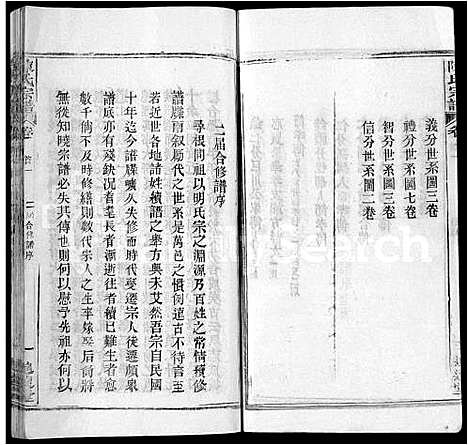 陳氏宗譜
義分世系圖三卷
禮分世系圖七卷
智分世系圖三卷
信分世系圖二卷
二屆合修譜序
尋根問祖以明氏宗之淵源乃百姓之常情續修
譜牒雨叙屬代之世系是萬邑之慣例遠古不待言至
若近世各地諸姓續譜之舉方興未艾然吾宗自民國
十年迄今曠久失修而時代變遷宗人後遷頗衆
數千倘不及時修續則數代宗人之生卒嫁娶后裔將
譜底亦有殘缺況者耄長者漸逝往者續已難生者愈
無從知曉宗譜必失其傳也則何以慰予先祖亦何以
陳氏宗譜
卷首
合修譜序